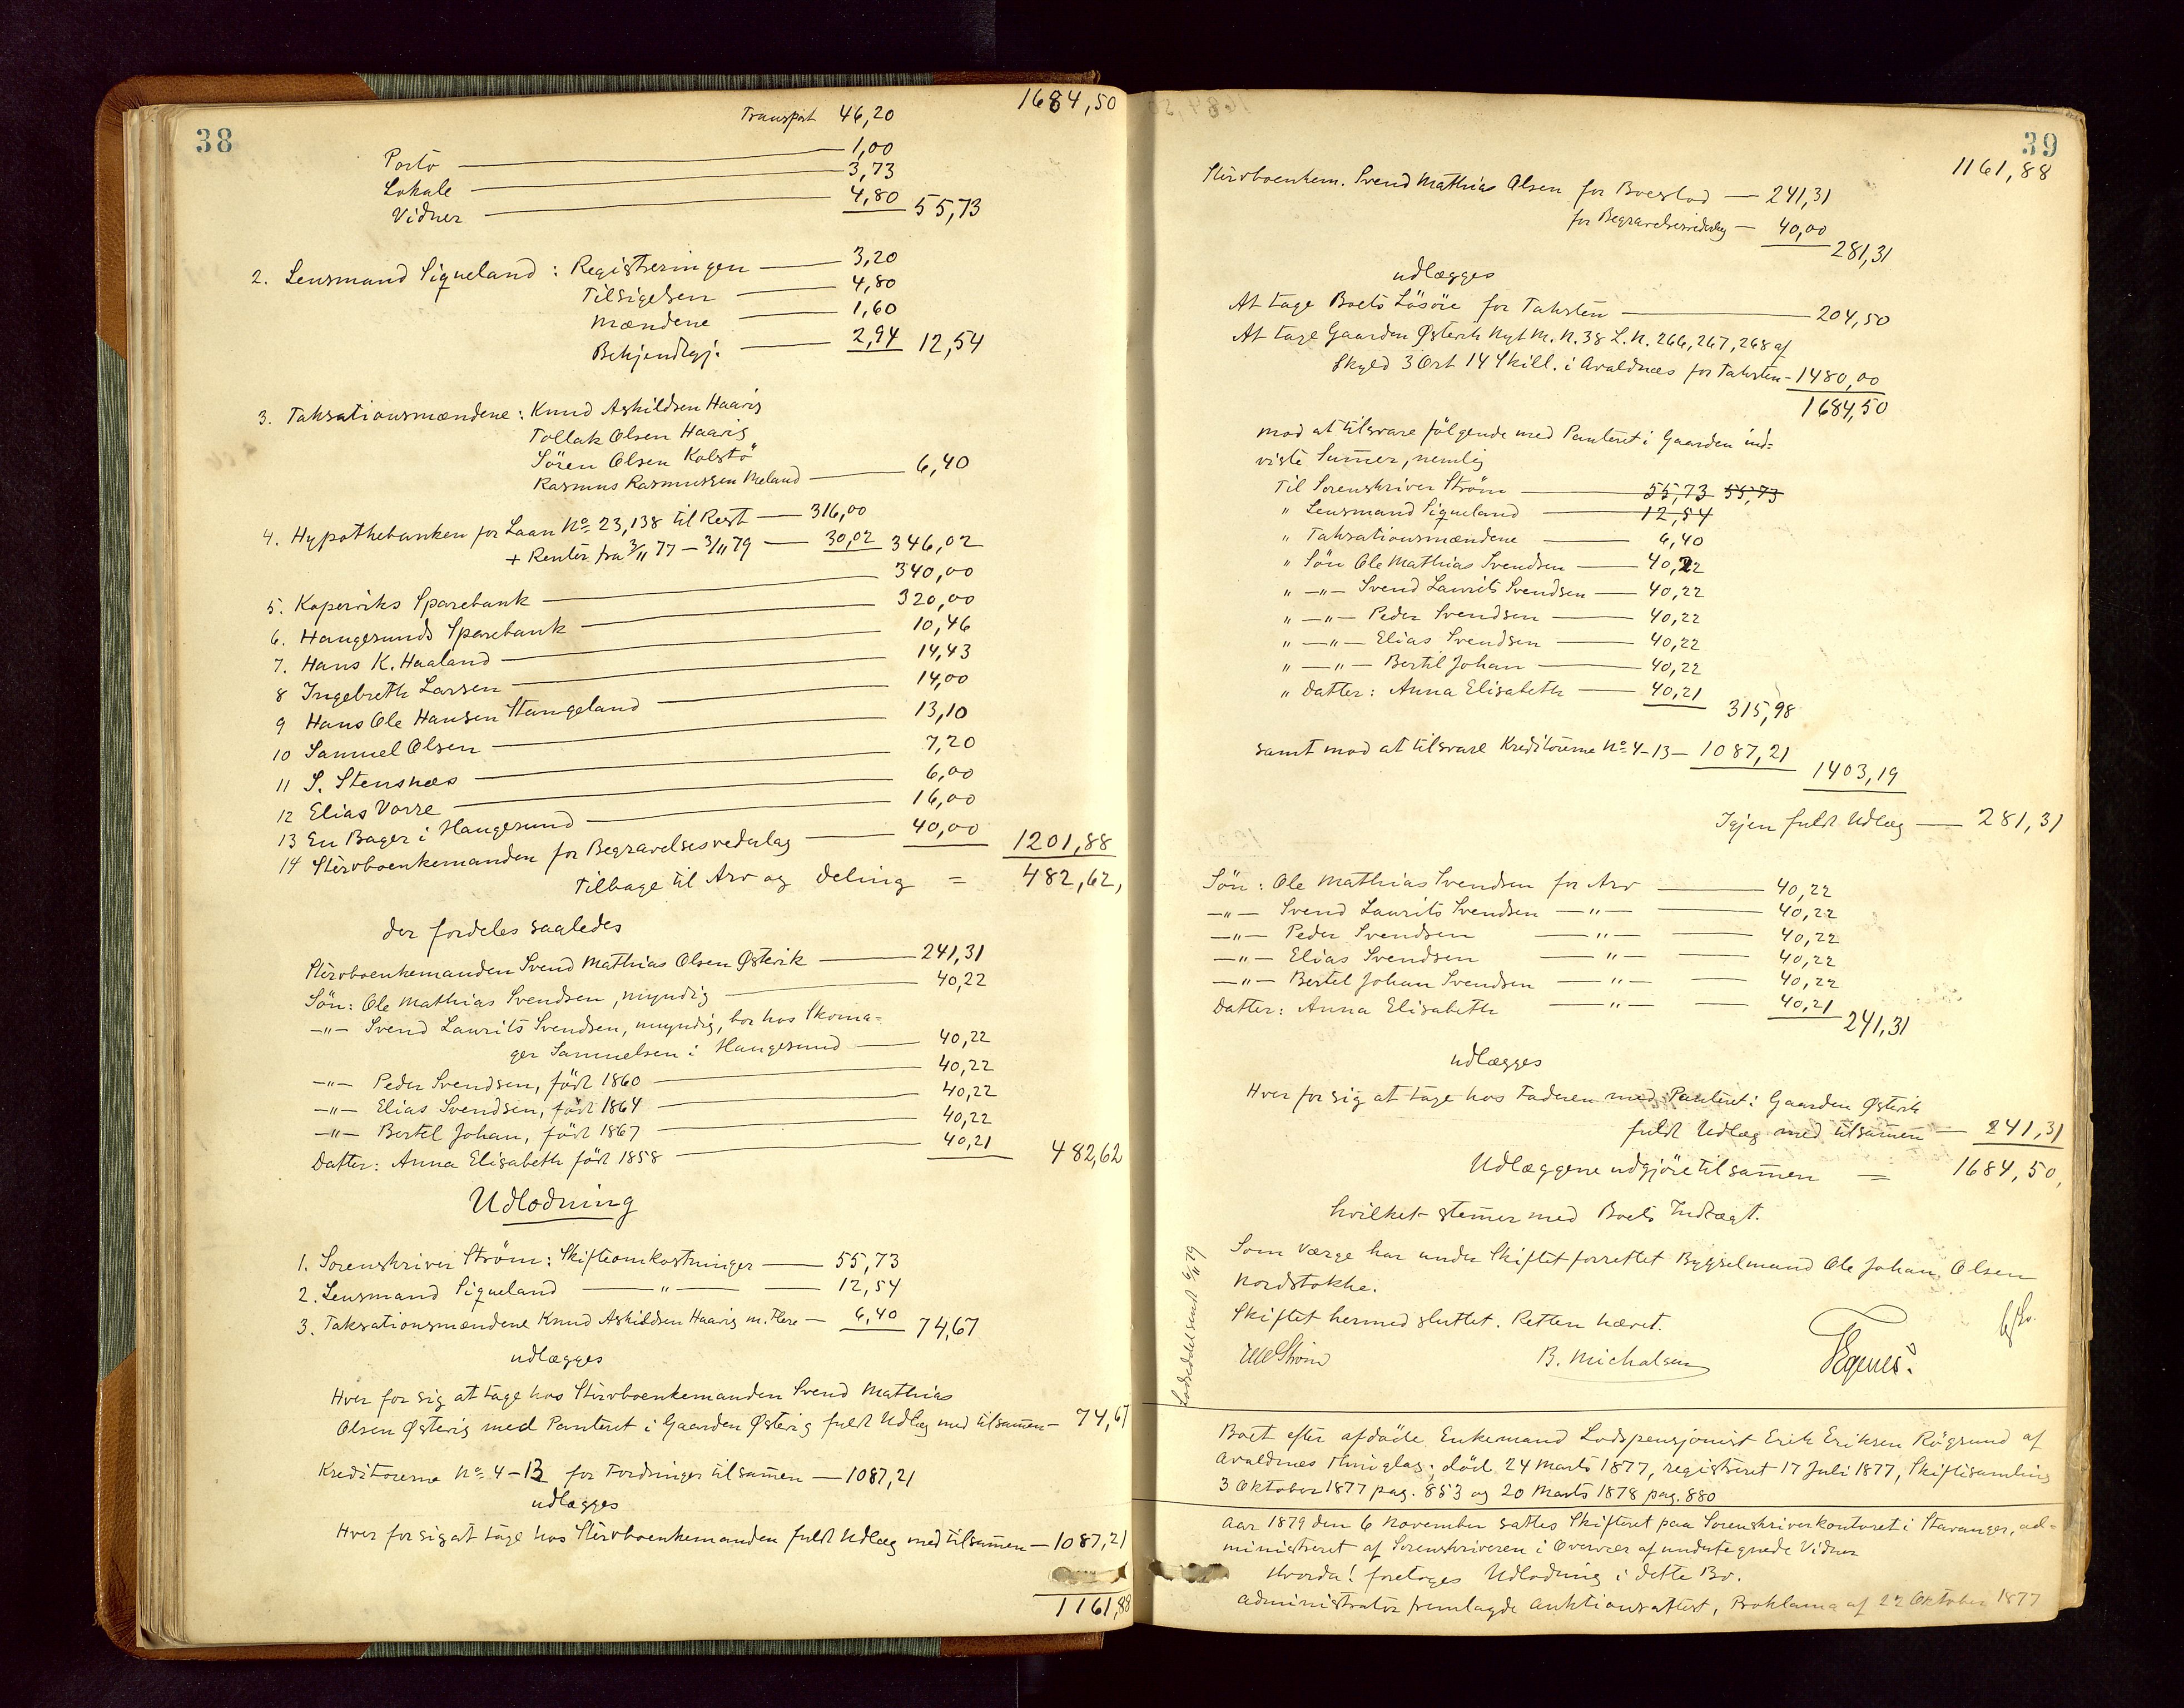 38
Transport 46,20 1684,50
Porto — 1,00
Lokale — 3,73
Vidner — 4,80 55,73
2. Lensmand Siqueland: Registreringen — 3,20
Tilsigelsen — 4,80
Mændene — 1,60
Bekjendtgj. — 2,94 12,54
3. Taksationsmændene: Knud Askildsen Haavig
Tollak Olsen Haavig
Sören Olsen Kolstö
Rasmus Rasmussen Meland — 6,40
4. Hypothebanken for Laan No 23,138 til Rest — 316,00
+ Renter fra 3/11 77 – 3/11 79 — 30,02 346,02
5. Koperviks Sparebank — 340,00
6. Haugesunds Sparebank — 320,00
7. Hans K. Haaland — 10,46
8 Ingebreth Larsen — 14,43
9 Hans Ole Hansen Stangeland — 14,00
10 Samuel Olsen — 13,10
11 S. Stensnæs — 7,20
12 Elias Vorre — 6,00
13 En Bager i Haugesund — 16,00
14 Stervboenkemanden for Begravelsesvederlag — 40,00 1201,88
Tilbage til Arv og Deling = 482,62,
der fordeles saaledes
Stervboenkemanden Svend Mathias Olsen Østevik — 241,31
Sön: Ole Mathias Svendsen, myndig — 40,22
—"— Svend Laurits Svendsen, myndig, bor hos Skoma=
ger Samuelsen i Haugesund — 40,22
—"— Peder Svendsen, födt 1860 — 40,22
—"— Elias Svendsen, födt 1864 — 40,22
—"— Bertel Johan, födt 1867 — 40,22
Datter: Anna Elisabeth födt 1858 — 40,21 482,62
Udlodning
1. Sorenskriver Ström: Skifteomkostninger — 55,73
2. Lensmand Siqueland — " — 12,54
3. Taksationsmændene Knud Askildsen Haavig m. Flere — 6,40 74,67
udlægges
Hver for sig at tage hos Stervboenkemanden Svend Mathias
Olsen Østevig med Panteret i Gaarden Østevig fuldt Udlæg med tilsamen — 74,67
Kreditorerne No 4–13 for Fordringer tilsamen — 1087,21
udlægges
Hver for sig at tage hos Stervboenkemanden fuldt Udlæg med tilsamen — 1087,21
1161,88
39
1161,88
Stervboenkem. Svend Mathias Olsen for Boeslod — 241,31
for Begravelsesvederlag — 40,00
281,31
udlægges
At tage Boets Lösöre for Taksten — 204,50
At tage Gaarden Østevik Nyt M. N. 38 L. N. 266, 267, 268 af
Skyld 3 Ort 14 Skill. i Avaldnæs for Taksten — 1480,00
1684,50
mod at tilsvare fölgende med Panteret i Gaarden ind=
viste Sumer, nemlig
Til Sorenskriver Ström — 55,73 55,73
" Lensmand Siqueland — 12,54
" Taksationsmændene — 6,40
" Sön Ole Mathias Svendsen — 40,22
" —"— Svend Laurits Svendsen — 40,22
" —"— Peder Svendsen — 40,22
" —"— Elias Svendsen — 40,22
" —"— Bertil Johan — 40,22
" Datter: Anna Elisabeth — 40,21
315,98
samt mod at tilsvare Kreditorerne No 4–13 — 1087,21
1403,19
Igjen fuldt Udlæg — 281,31
Sön: Ole Mathias Svendsen for Arv — 40,22
—"— Svend Laurits Svendsen —"— — 40,22
—"— Peder Svendsen —"— — 40,22
—"— Elias Svendsen —"— — 40,22
—"— Bertel Johan Svendsen —"— — 40,22
Datter: Anna Elisabeth —"— — 40,21
241,31
udlægges
Hver for sig at tage hos Faderen med Panteret i Gaarden Østevik
fuldt Udlæg med tilsamen — 241,31
Udlæggene udgjöre tilsamen = 1684,50,
hvilket stemer med Boets Indtægt.
Som Værge har under Skiftet forrettet Bygselmand Ole Johan Olsen
Nordstokke.
Skiftet hermed sluttet. Retten hævet.
Ström B. Michalsen
Lodseddel sendt 6/11 79
Boet efter afdöde Enkemand Lodspensjonist Erik Eriksen Rögsund af
Avaldnæs Thinglag; död 24 Marts 1877, registreret 17 Juli 1877, Skiftesamling
3 Oktober 1877 pag. 853 og 20 Marts 1878 pag. 880
Aar 1879 den 6 November sattes Skifteret paa Sorenskriverkontoret i Stavanger, ad=
ministreret af Sorenskriveren i Overvær af undertegnede Vidner
Hvorda! foretoges Udlodning i dette Bo.
Administrator fremlagde Auktionsattest, Proklama af 22 Oktober 1877